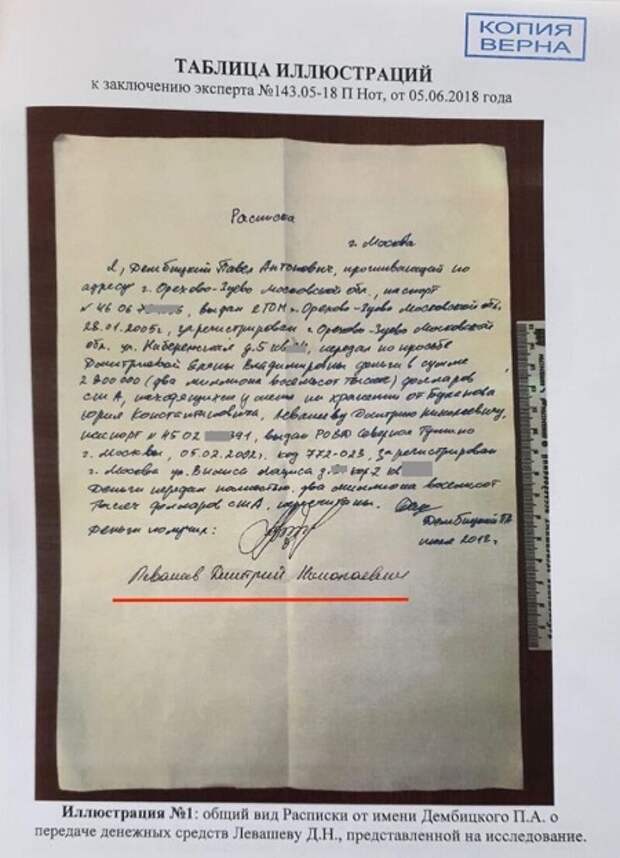 КОПИЯ
ВЕРНА
ТАБЛИЦА ИЛЛЮСТРАЦИЙ
к заключению эксперта №143.05-18 П Нот, от 05.06.2018 года
Расписка
г. Москва
Я, Дембицкий Павел Антонович, проживающий по
адресу г. Орехово-Зуево Московской обл., паспорт
N 46 06 выдан 2 ГОМ г. Орехово-Зуево Московской обл.
28.01.2005г., зарегистрирован г. Орехово-Зуево Московской
обл. ул. Набережная д.5 кв передал по просьбе
Дмитриевой Елены Владимировны деньги в сумме
2 800 000 (два миллиона восемьсот тысяч) долларов
США, находящихся у меня на хранении от
Юрия Константиновича, Левашеву Дмитрию Николаевичу,
паспорт N 45 02 391, выдан РОВД Северное Тушино
г. Москвы, 05.02.2002г. код 772-023, зарегистрирован
г. Москва ул. Вилиса Лациса д. кор 2 кв
Деньги передал полностью. два миллиона восемьсот
тысяч долларов США, пересчитаны.
Дембицкий ПА
Деньги получил:
июля 2012г
Левашев Дмитрий Николаевич
Иллюстрация №1: общий вид Расписки от имени Дембицкого П.А. о
передаче денежных средств Левашеву Д.Н., представленной на исследование.